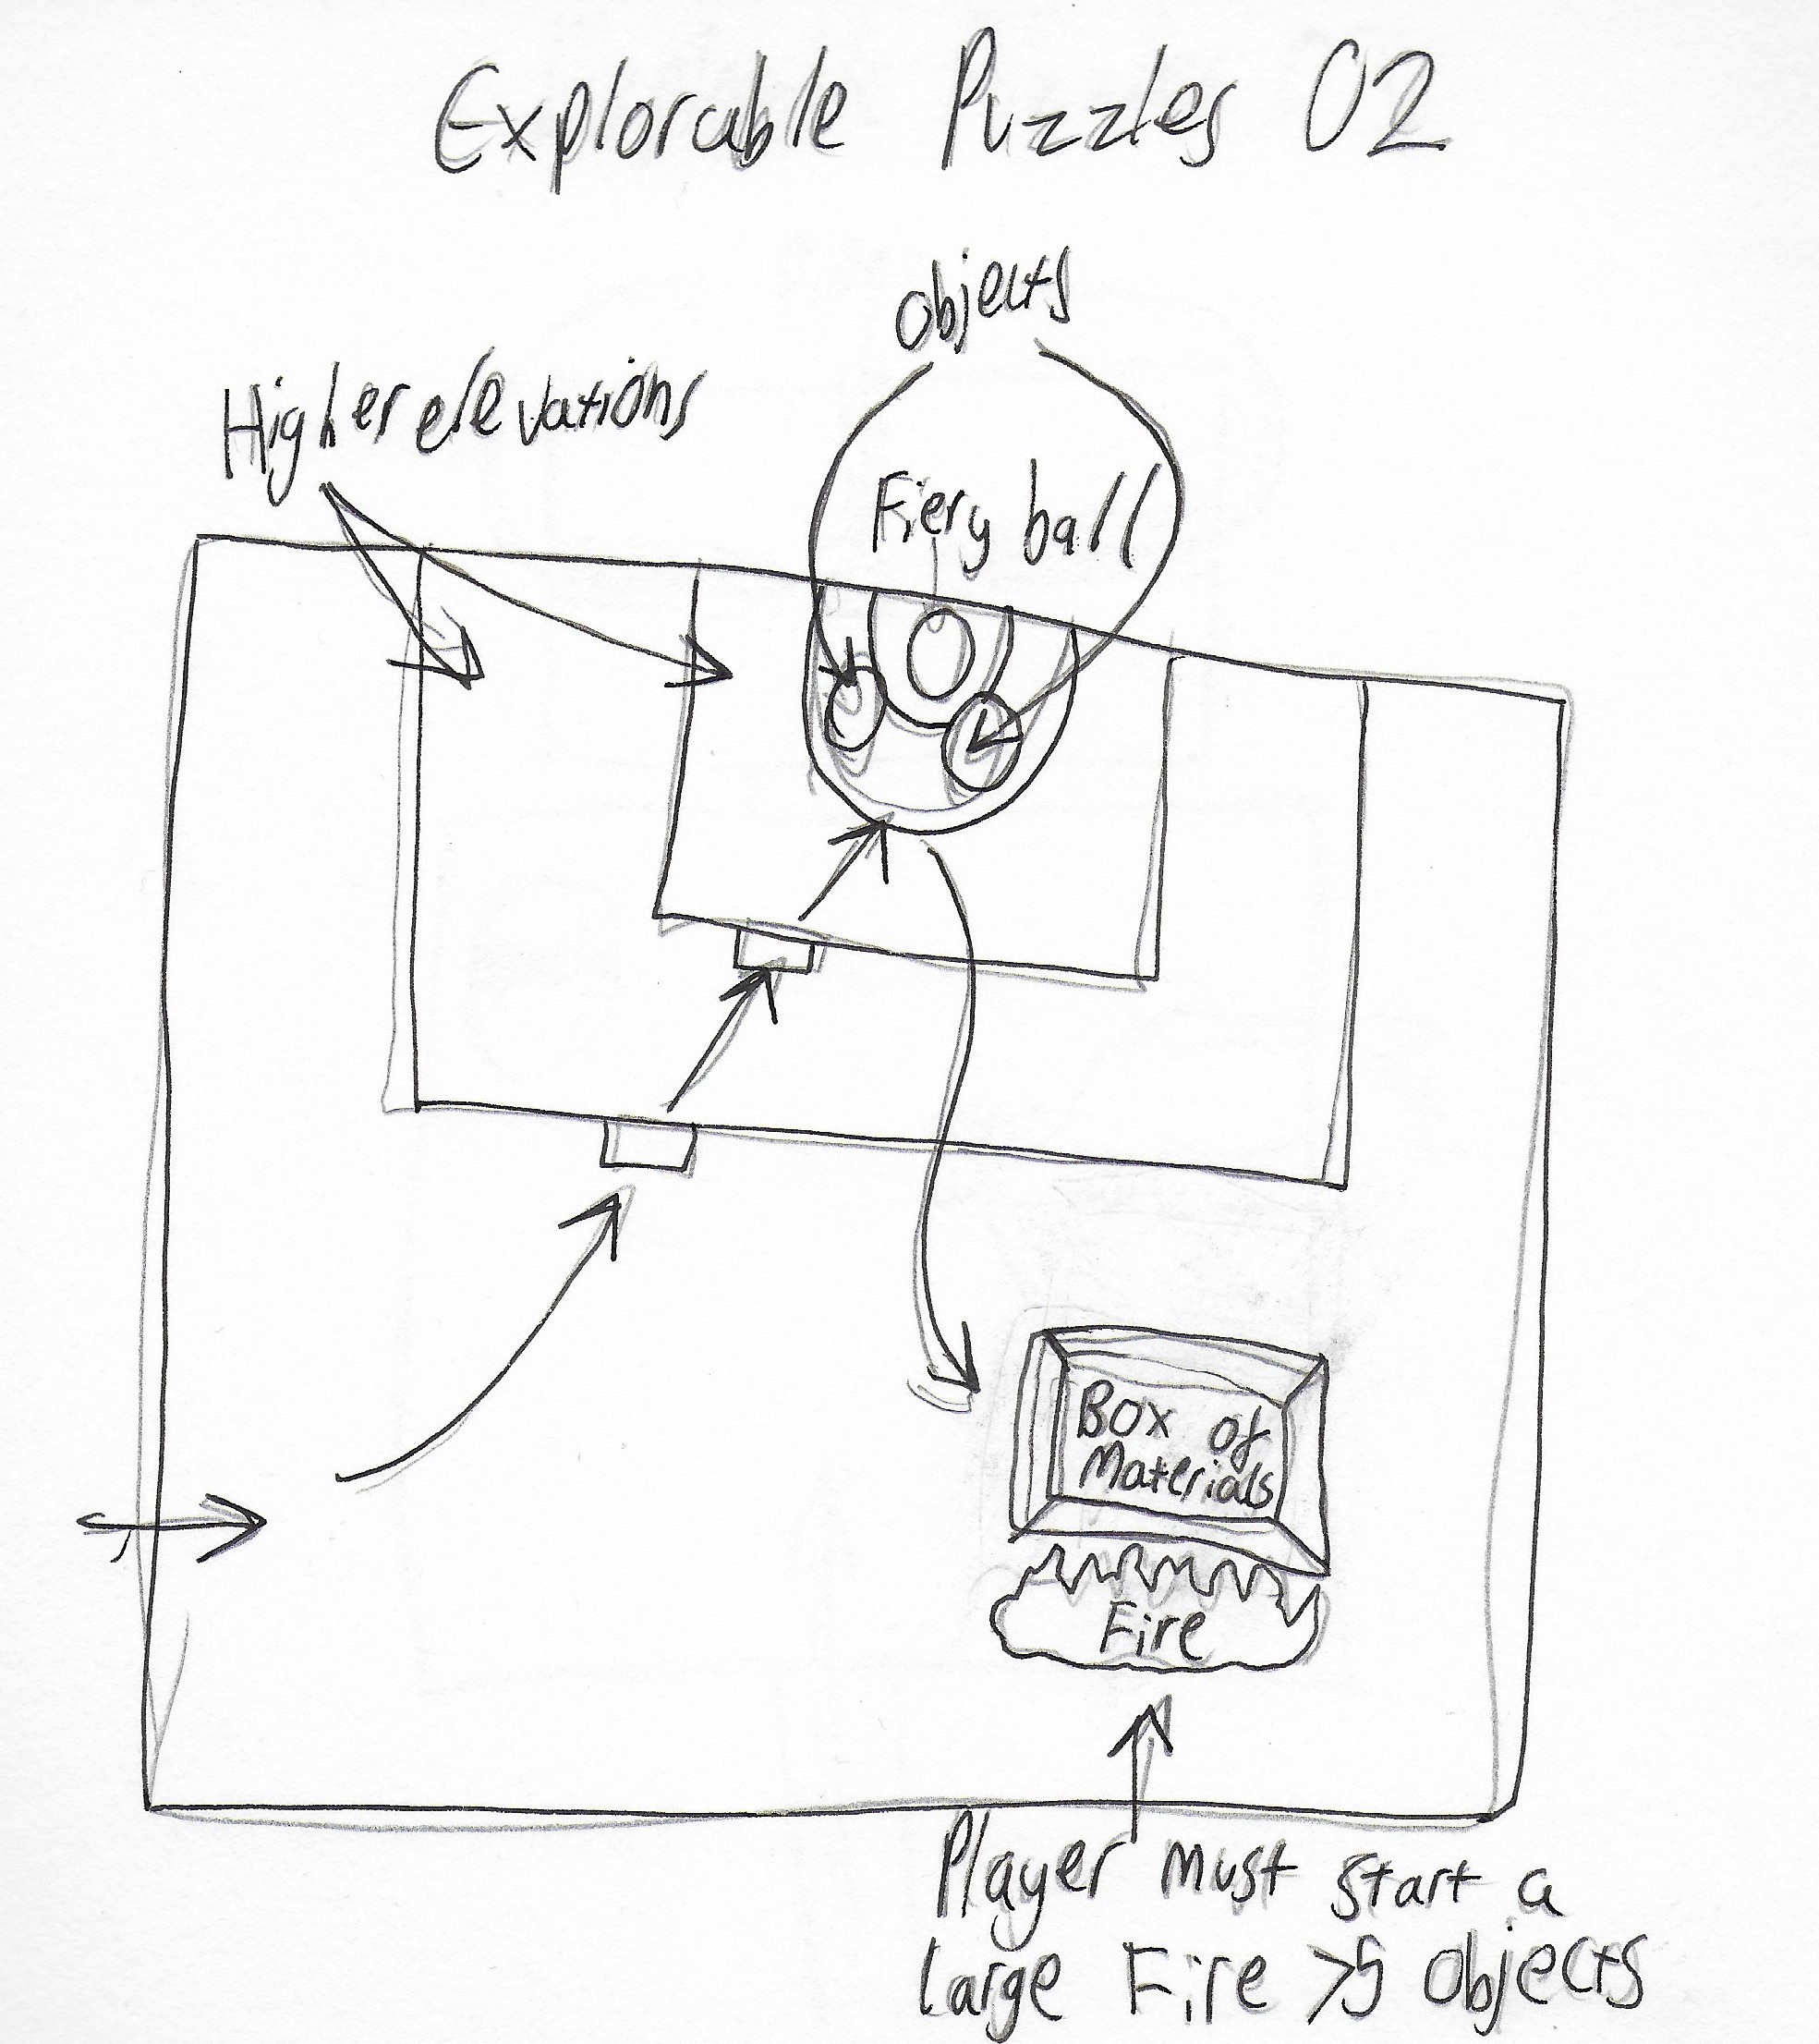 Explorable Puzzles 02
Objects
Higher elevations
Fiery ball
Box of
Materials
Fire
Player must start a
large Fire >5 Objects